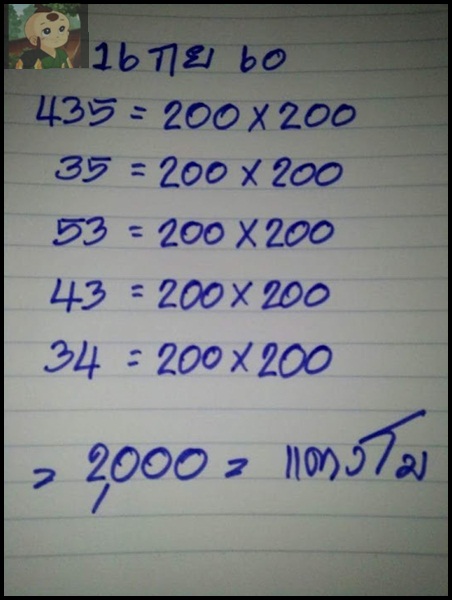 16 กย 60
435 = 200 x 200
35 = 200 x 200
53 = 200 x 200
43 = 200 x 200
34 = 200 x 200
= 2,000 = แตงโม